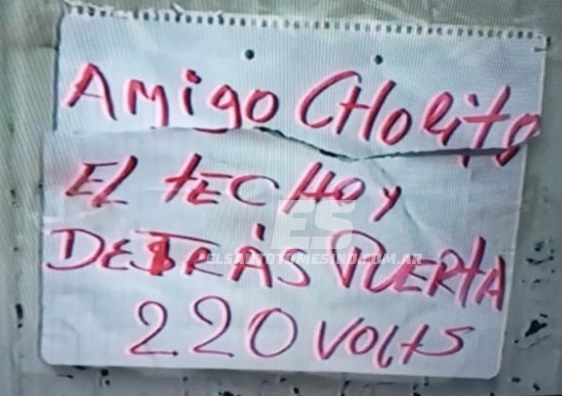 Amigo CHOLITO
EL TECHO Y
DETRÁS PUERTA
220 VOLTS
ES
ELSANTOTOMESINO.COM.AR